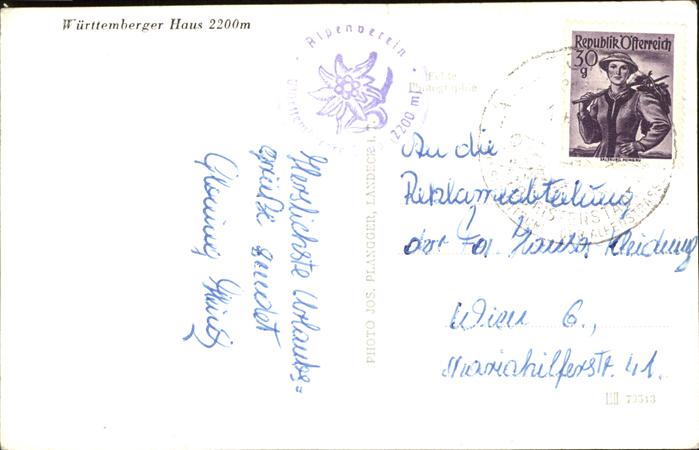 Württemberger Haus 2200m
Alpenverein
2200 m
Echte
Photographie
Republik Österreich
30
g
SALZBURG, PONGAU
Herzlichste Urlaubs=
grüße sendet
PHOTO JOS. PLANGGER, LANDECK i. T.
An die
Reklameabteilung
der Fa. Kleidung
Wien 6.,
Mariahilferstr. 41.